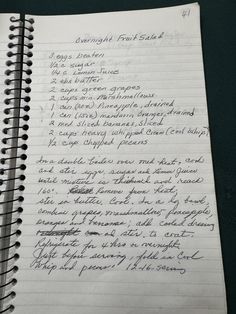 41
Overnight Fruit Salad
3 eggs beaten
1/4 c sugar
1/4 c lemon juice
2 tbs butter
2 cups green grapes
2 cups mini marshmallows
1 can pineapple, drained
1 can (15oz) mandarin oranges, drained
2 med sliced bananas, sliced
2 cups heavy whipped cream (cool whip)
1/2 cup chopped pecans
In a double boiler over med heat, cook
and stir eggs, sugar and lemon juice
until mixture is thickened and reach
160°. Remove from heat,
stir in butter. Cool. In a lg bowl,
combine grapes, marshmallows, pineapple,
oranges and bananas; add cooled dressing
and stir to coat.
Refrigerate for 4 hrs or overnight.
Just before serving, fold in Cool
Whip and pecans. 12-16 serving